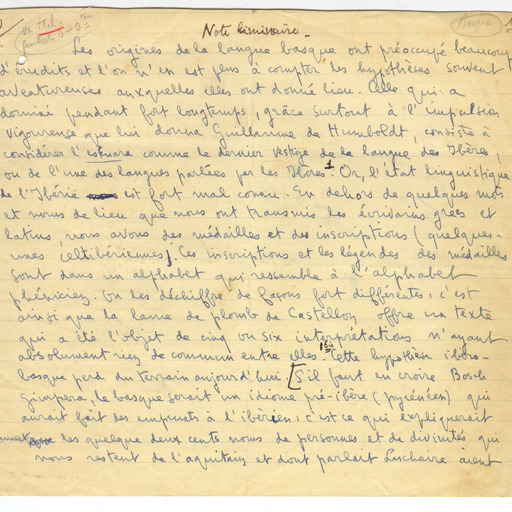 Note liminaire.
Basque
Les origines de la langue basque ont préoccupé beaucoup
d'érudits et l'on n'en est plus à compter les hypothèses souvent
aventureuses auxquelles elles ont donné lieu. Celle qui a
dominé pendant fort longtemps, grâce surtout à l'impulsion
vigoureuse que lui donna Guillaume de Humboldt, consiste à
considérer l'eskuara comme le dernier vestige de la langue des Ibères,
ou de l'une des langues parlées par les Ibères 1. Or, l'état linguistique
de l'Ibérie est fort mal connu. En dehors de quelques mots
et noms de lieu que nous ont transmis les écrivains grecs et
latins, nous avons des médailles et des inscriptions (quelques-
unes celtibériennes). Ces inscriptions et les légendes des médailles
sont dans un alphabet qui ressemble à l'alphabet
phénicien. On les déchiffre de façons fort différentes : c'est
ainsi que la lame de plomb de Castellon offre un texte
qui a été l'objet de cinq ou six interprétations n'ayant
absolument rien de commun entre elles. Cette hypothèse ibéro-
basque perd du terrain aujourd'hui [S'il faut en croire Bosch
Gimpera, le basque serait un idiome pré-ibère (pyrénéen) qui
aurait fait des emprunts à l'ibérien : c'est ce qui expliquerait
les quelque deux cents noms de personnes et de divinités qui
nous restent de l'aquitain et dont parlait Luchaire aient